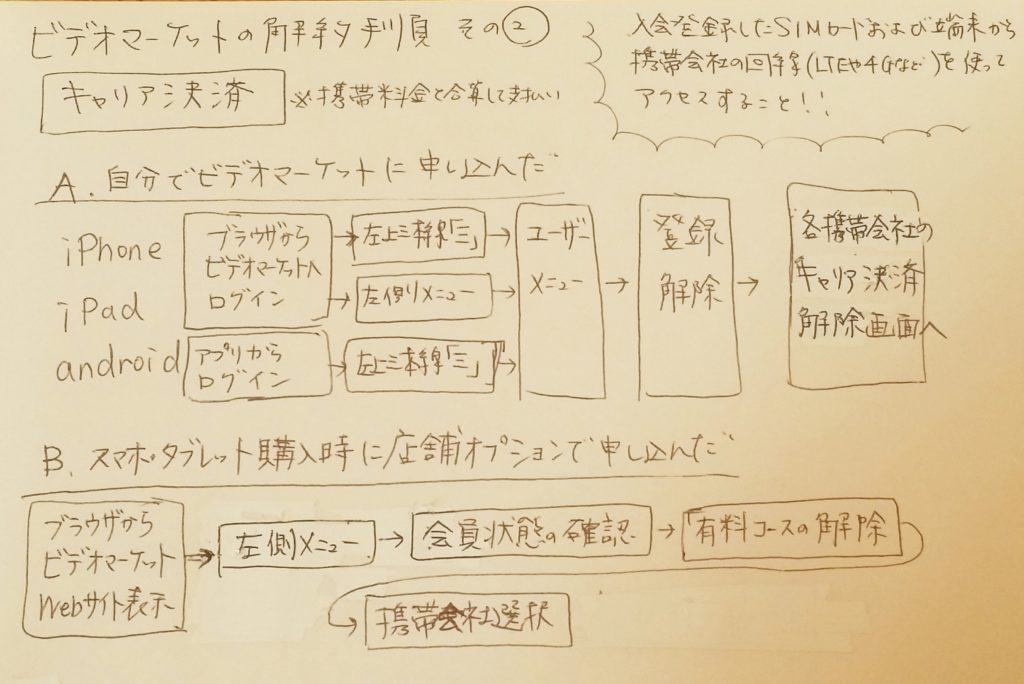 ビデオマーケットの解約手順 その②
入会登録したSIMカードおよび端末から
携帯会社の回線(LTEや4Gなど)を使って
アクセスすること!!
キャリア決済
※携帯料金と合算して支払い
A. 自分でビデオマーケットに申し込んだ
iPhone
iPad
android
ブラウザから
ビデオマーケットへ
ログイン
→ 左上三本線「三」 →
→ 左側メニュー →
アプリから
ログイン
→ 左上三本線「三」 →
ユーザー
メニュー
→
登録
解除
→
各携帯会社の
キャリア決済
解除画面へ
B. スマホ・タブレット購入時に店舗オプションで申し込んだ
ブラウザから
ビデオマーケット
Webサイト表示
→ 左側メニュー → 会員状態の確認 → 「有料コースの解除
→ 携帯会社選択